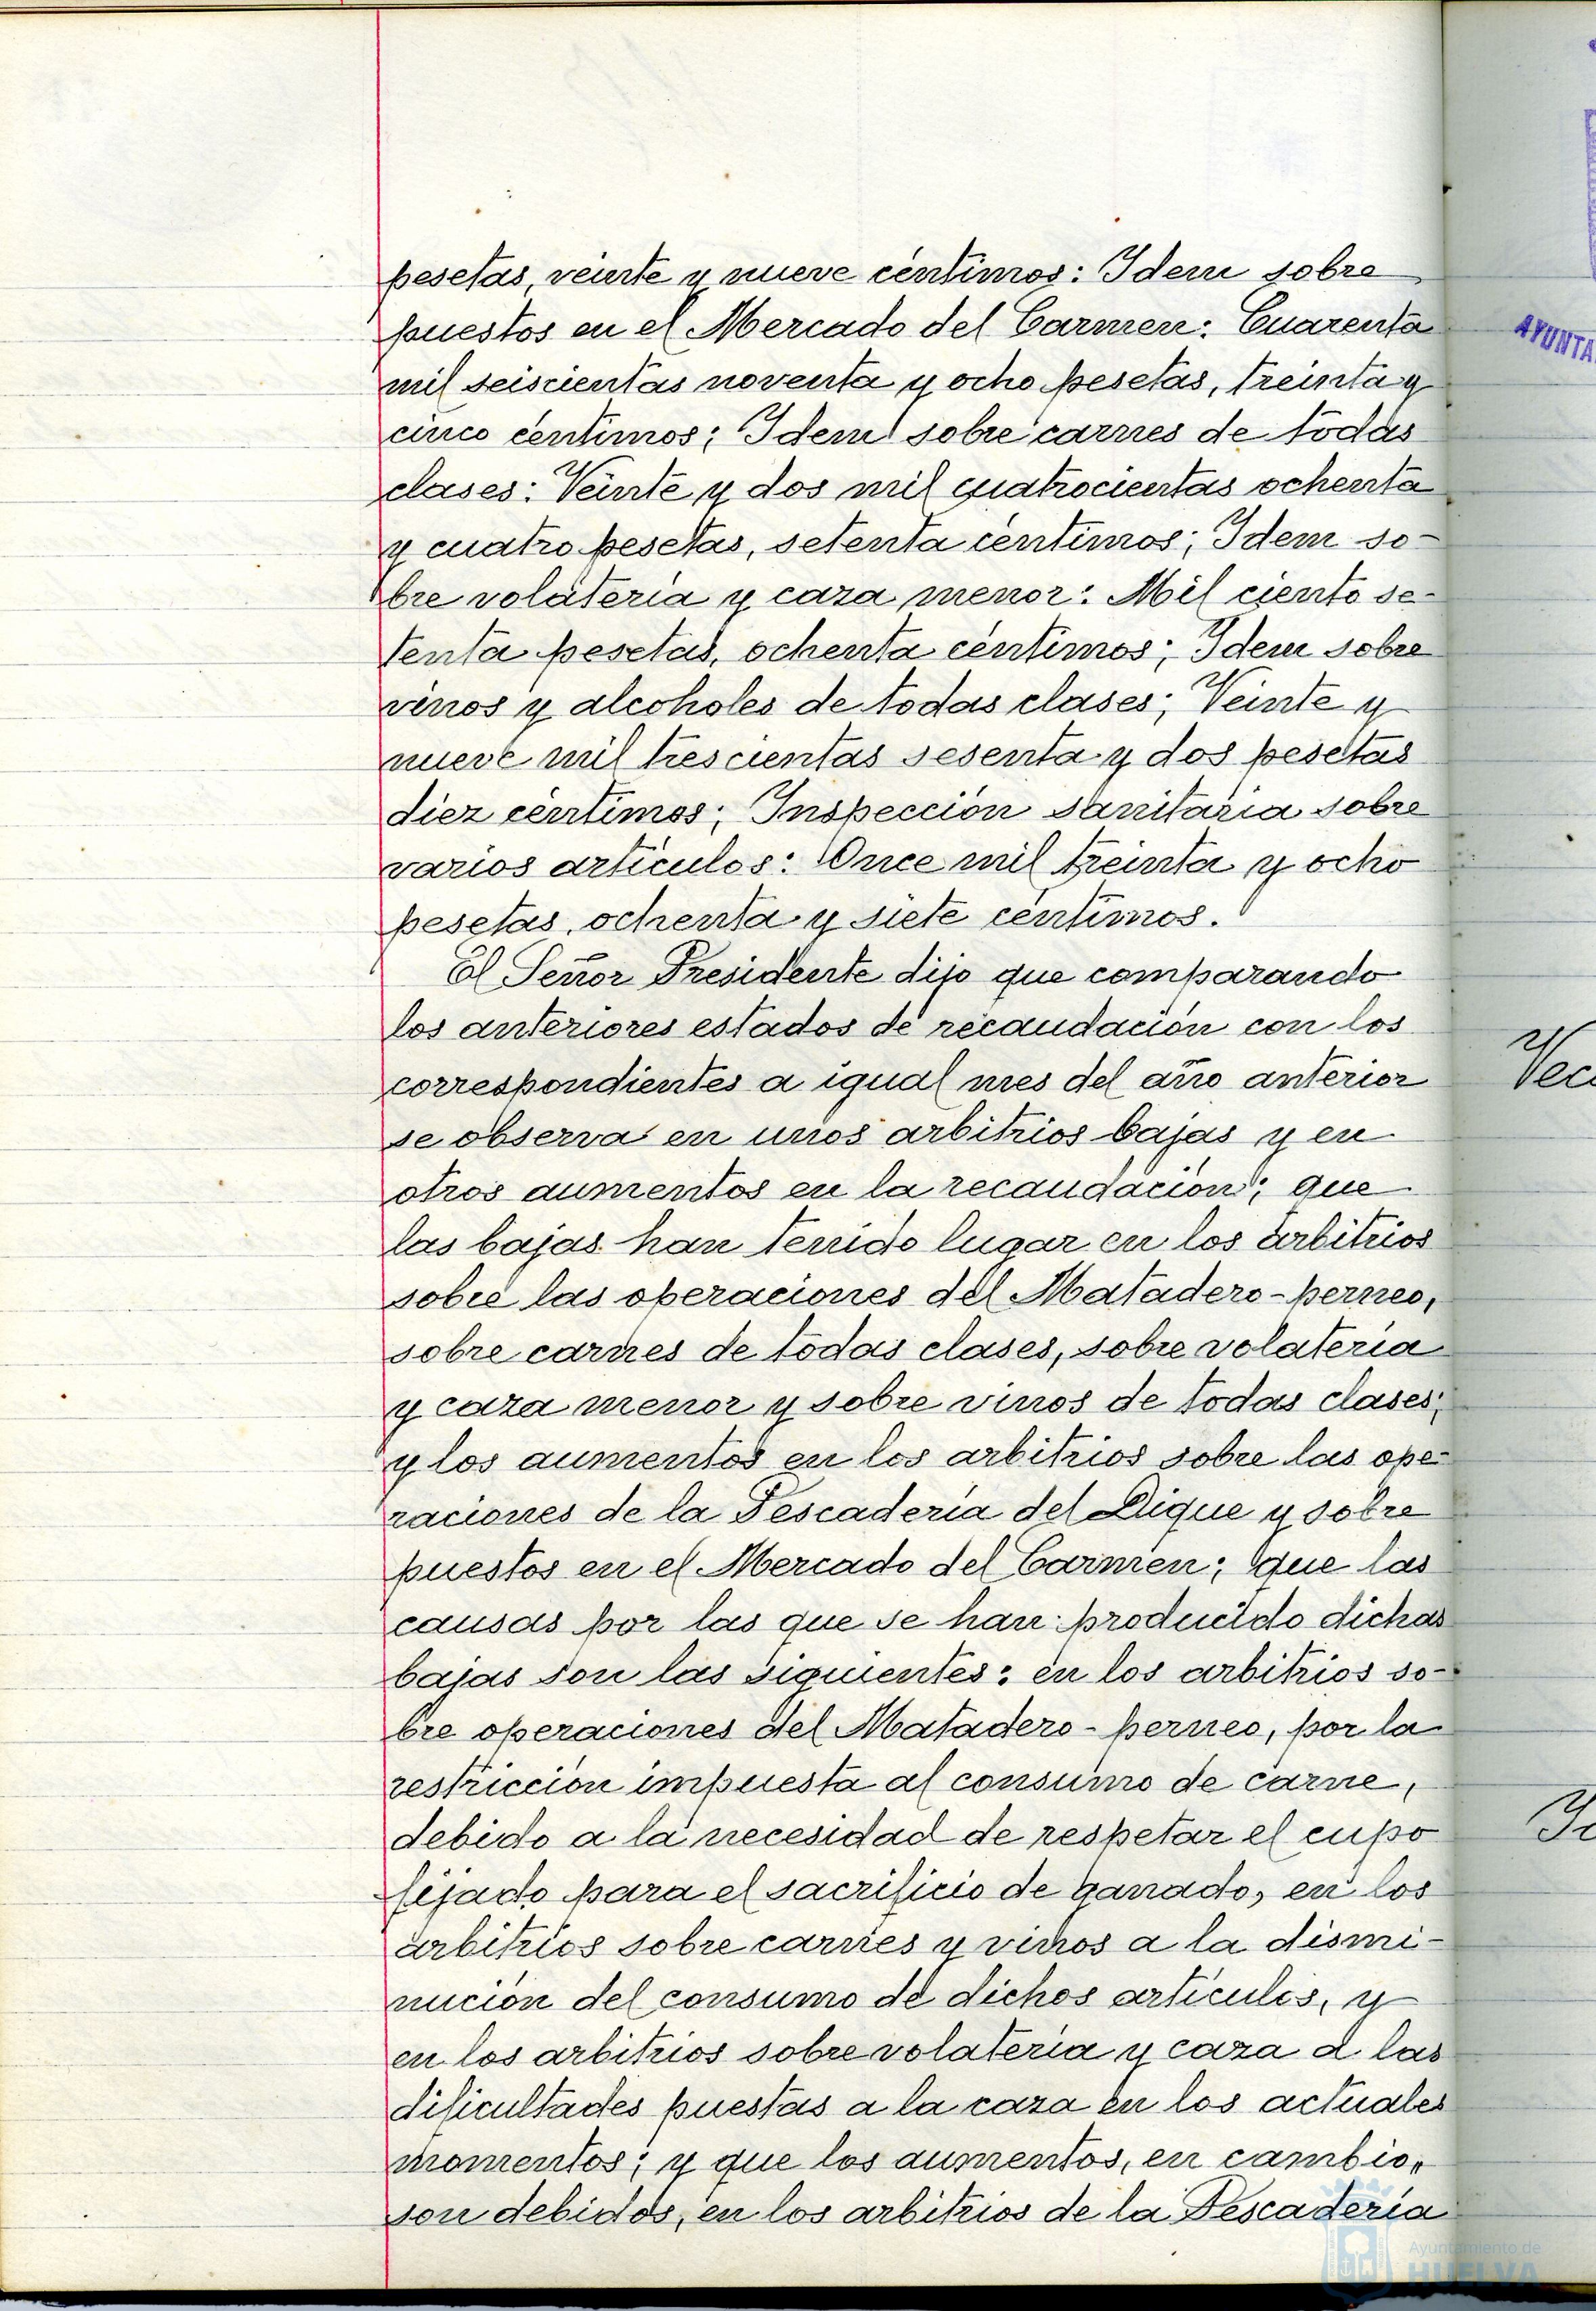 pesetas, veinte y nueve céntimos: Idem sobre
puestos en el Mercado del Carmen: Cuarenta
mil seiscientas noventa y ocho pesetas, treinta y
cinco céntimos; Idem sobre carnes de todas
clases: Veinte y dos mil cuatrocientas ochenta
y cuatro pesetas, setenta céntimos; Idem so-
bre volatería y caza menor: Mil ciento se-
tenta pesetas, ochenta céntimos; Idem sobre
vinos y alcoholes de todas clases; Veinte y
nueve mil trescientas sesenta y dos pesetas
diez céntimos; Inspección Sanitaria sobre
varios artículos: Once mil treinta y ocho
pesetas, ochenta y siete céntimos.
El Señor Presidente dijo que comparando
los anteriores estados de recaudación con los
correspondientes a igual mes del año anterior
se observa en unos arbitrios bajas y en
otros aumentos en la recaudación; que
las bajas han tenido lugar en los arbitrios
sobre las operaciones del Matadero-perneo,
sobre carnes de todas clases, sobre volatería
y caza menor y sobre vinos de todas clases;
y los aumentos en los arbitrios sobre las ope-
raciones de la Pescadería del Dique y sobre
puestos en el Mercado del Carmen; que las
causas por las que se han producido dichas
bajas son las siguientes: en los arbitrios so-
bre operaciones del Matadero-perneo, por la
restricción impuesta al consumo de carne,
debido a la necesidad de respetar el cupo
fijado para el sacrificio de ganado, en los
arbitrios sobre carnes y vinos a la dismi-
nución del consumo de dichos artículos, y
en los arbitrios sobre volatería y caza a las
dificultades puestas a la caza en los actuales
momentos; y que los aumentos, en cambio,
son debidos, en los arbitrios de la Pescadería
AYUNTA
Vec
Ayuntamiento de
HUELVA